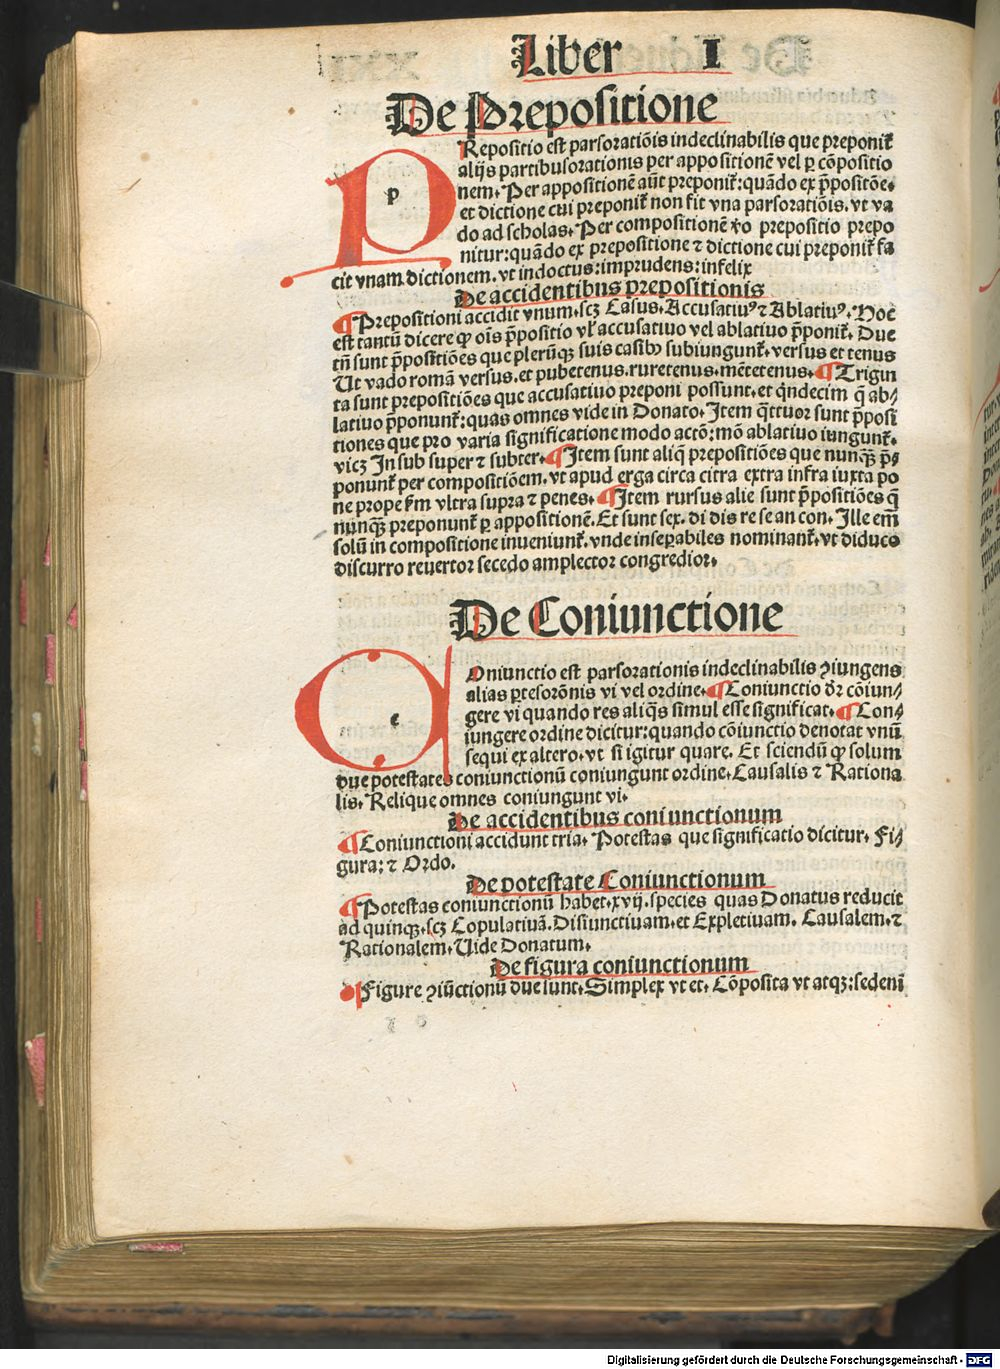 Liber I
De Prepositione
pRepositio est pars oratiōis indeclinabilis que preponit̄
alijs partibus orationis per appositionē vel ꝑ cōpositio
nem. Per appositionē aūt preponit̄: quādo ex p̄positōe.
et dictione cui preponit̄ non fit vna pars oratiōis. vt va
do ad scholas. Per compositionē ꝟo prepositio prepo
nitur: quādo ex prepositione ⁊ dictione cui preponit̄ fa
cit vnam dictionem. vt indoctus: imprudens: infelix
De accidentibus prepositionis
¶ Prepositioni accidit vnum. scꝫ Casus. Accusatiuꝰ ⁊ Ablatiuꝰ. Hoc
est tantū dicere ꝙ oīs p̄positio vl̓ accusatiuo vel ablatiuo p̄ponit̄. Due
tn̄ sunt p̄positiōes que plerūqꝫ suis casibꝰ subiungunt̄. versus et tenus
Ut vado romā versus. et pubetenus. ruretenus. mētetenus. ¶ Trigin
ta sunt prepositiōes que accusatiuo preponi possunt. et qͥndecim q̄ ab⸗
latiuo p̄ponunt̄: quas omnes vide in Donato. Item q̄ttuor sunt p̄posi
tiones que pro varia significatione modo actō: mō ablatiuo iungunt̄.
vicꝫ In sub super ⁊ subter. ¶ Item sunt aliq̄ prepositiōes que nunqꝫ p̄
ponunt̄ per compositiōem. vt apud erga circa citra extra infra iuxta po
ne prope s̄m vltra supra ⁊ penes. ¶ Item rursus alie sunt p̄positiōes q̄
nunqꝫ preponunt̄ ꝑ appositionē. Et sunt sex. di dis re se an con. Ille em̄
solū in compositione inueniunt̄. vnde inseꝑabiles nominant̄. vt diduco
discurro reuertor secedo amplector congredior.
De Coniunctione
cOniunctio est pars orationis indeclinabilis ꝯiungens
alias ꝑtes orōnis vi vel ordine. ¶ Coniunctio dr̄ cōiun⸗
gere vi quando res aliq̄s simul esse significat. ¶ Con⸗
iungere ordine dicitur: quando cōiunctio denotat vnū
sequi ex altero. vt si igitur quare. Et sciendū ꝙ solum
due potestates coniunctionū coniungunt ordine. Causalis ⁊ Rationa
lis. Relique omnes coniungunt vi.
De accidentibus coniunctionum
¶ Coniunctioni accidunt tria. Potestas que significatio dicitur. Fi⸗
gura: ⁊ Ordo.
De potestate Coniunctionum
¶ Potestas coniunctionū habet. xvij. species quas Donatus reducit
ad quinqꝫ. scꝫ Copulatiuā. Disiunctiuam. et Expletiuam. Causalem. ⁊
Rationalem. Uide Donatum.
De figura coniunctionum
¶ Figure ꝯiūctionū due sunt. Simplex vt et. Cōposita vt atqꝫ: sed eni̅
Digitalisierung gefördert durch die Deutsche Forschungsgemeinschaft - DFG